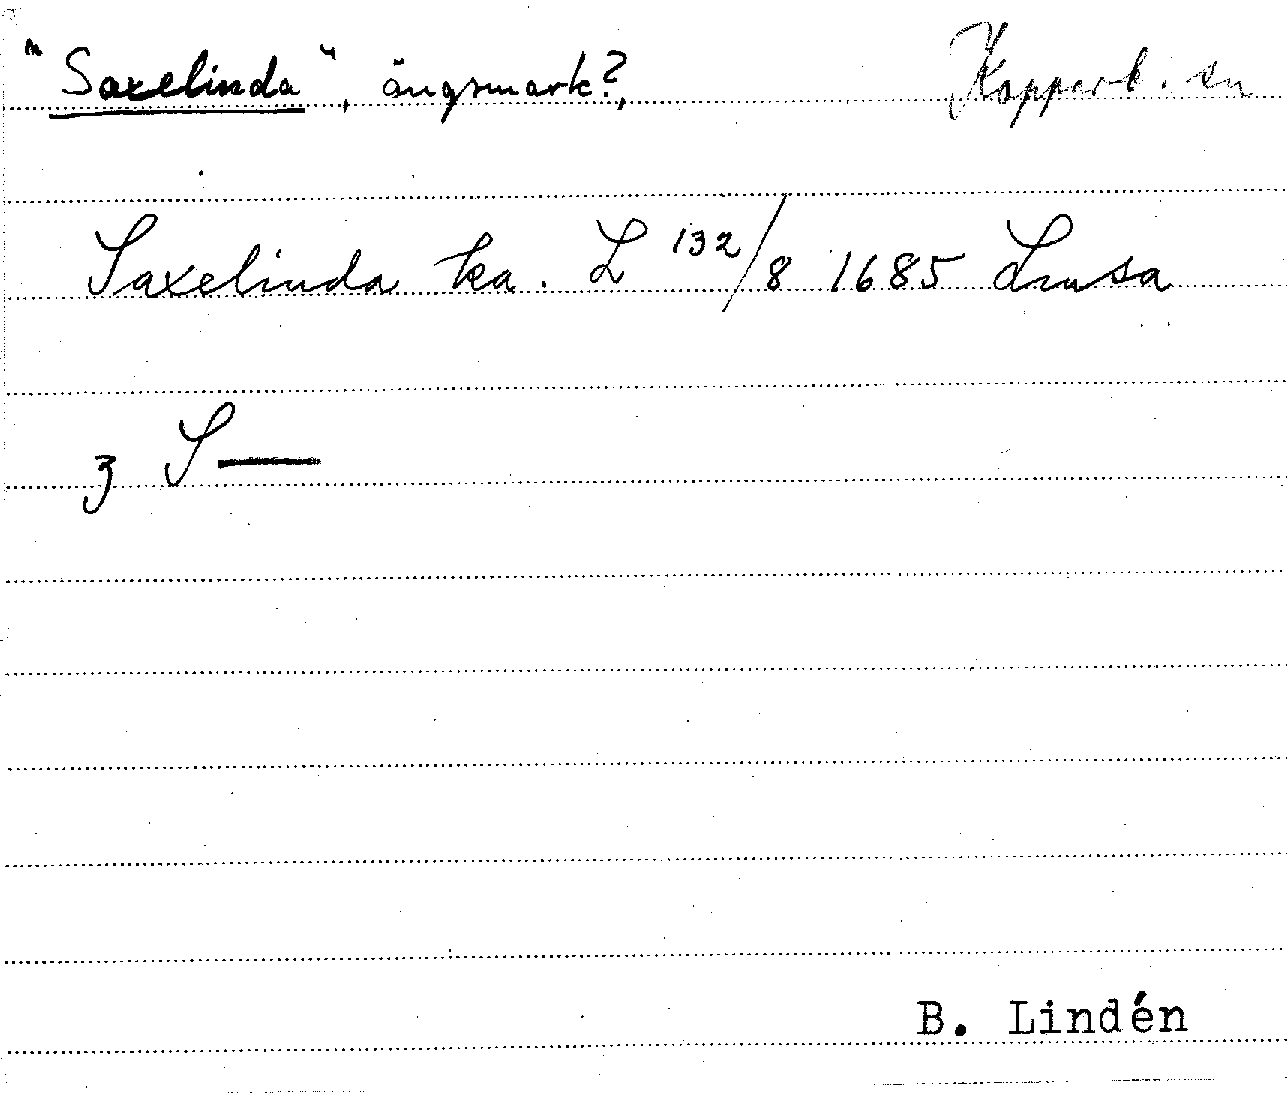 "Saxelinda", ängsmark?, Kopparb. sn
Saxelinda ka. L 132/8 1685 Lusa
z S—
B. Lindén